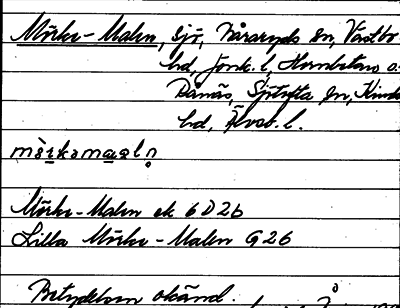 Mörke-Malen, sjö, Båraryds sn, Västbo
hd, Jönk. l., Hornbetens o.
Dernäs, Sjötofta sn, Kinds
hd, Älvsb. l.
mö̀rkəmaəln
Mörke-Malen ek 6D2b
Lilla Mörke-Malen G26
Betydelsen okänd.